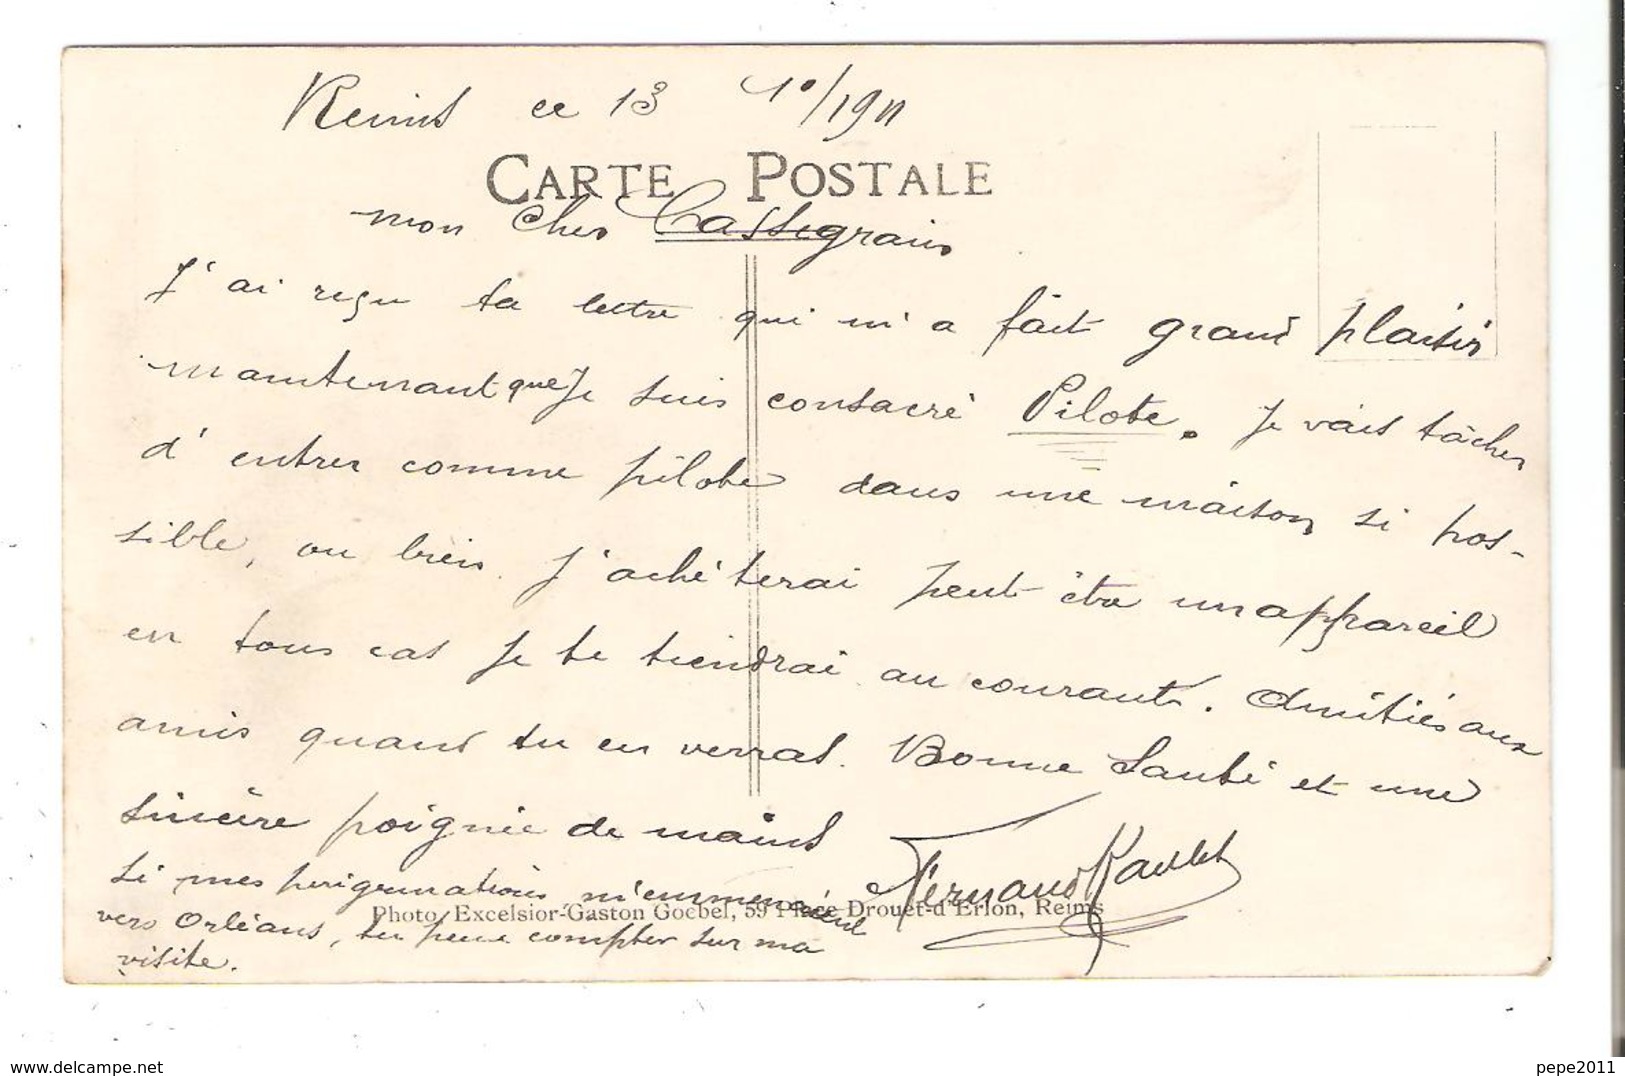 Reims ce 13 10/1911
CARTE POSTALE
mon cher Cassegrain
J'ai reçu ta lettre qui m'a fait grand plaisir
maintenant que Je suis consacré Pilote. Je vais tâcher
d'entrer comme pilote dans une maison si pos-
sible, ou bien j'achèterai peut être un appareil
en tous cas Je te tiendrai au courant. Amitiés aux
amis quand tu en verras. Bonne Santé et une
sincère poignée de mains
Fernand
Si mes perigrinations m'emmenaient
Photo. Excelsior-Gaston Goebel, 59 Place Drouet-d'Erlon, Reims
vers Orléans, tu peux compter sur ma
visite.
pepe2011
www.delcampe.net